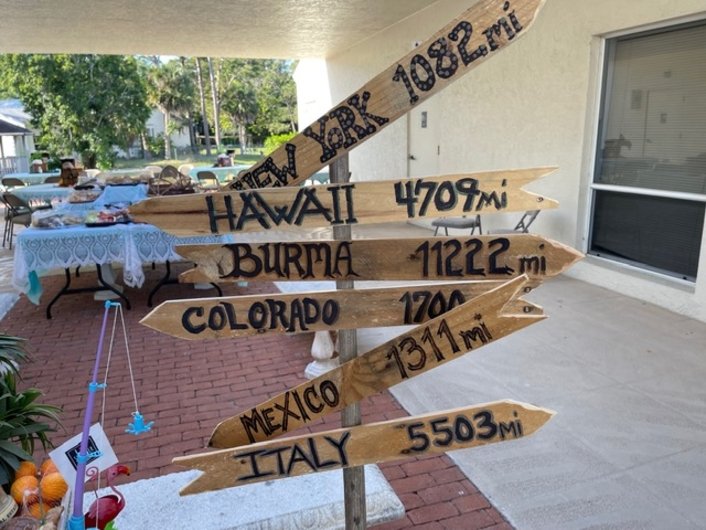 NEW YORK 1082 mi
HAWAII 4709 mi
BURMA 11222 mi
COLORADO 1700
MEXICO 1311 mi
ITALY 5503 mi